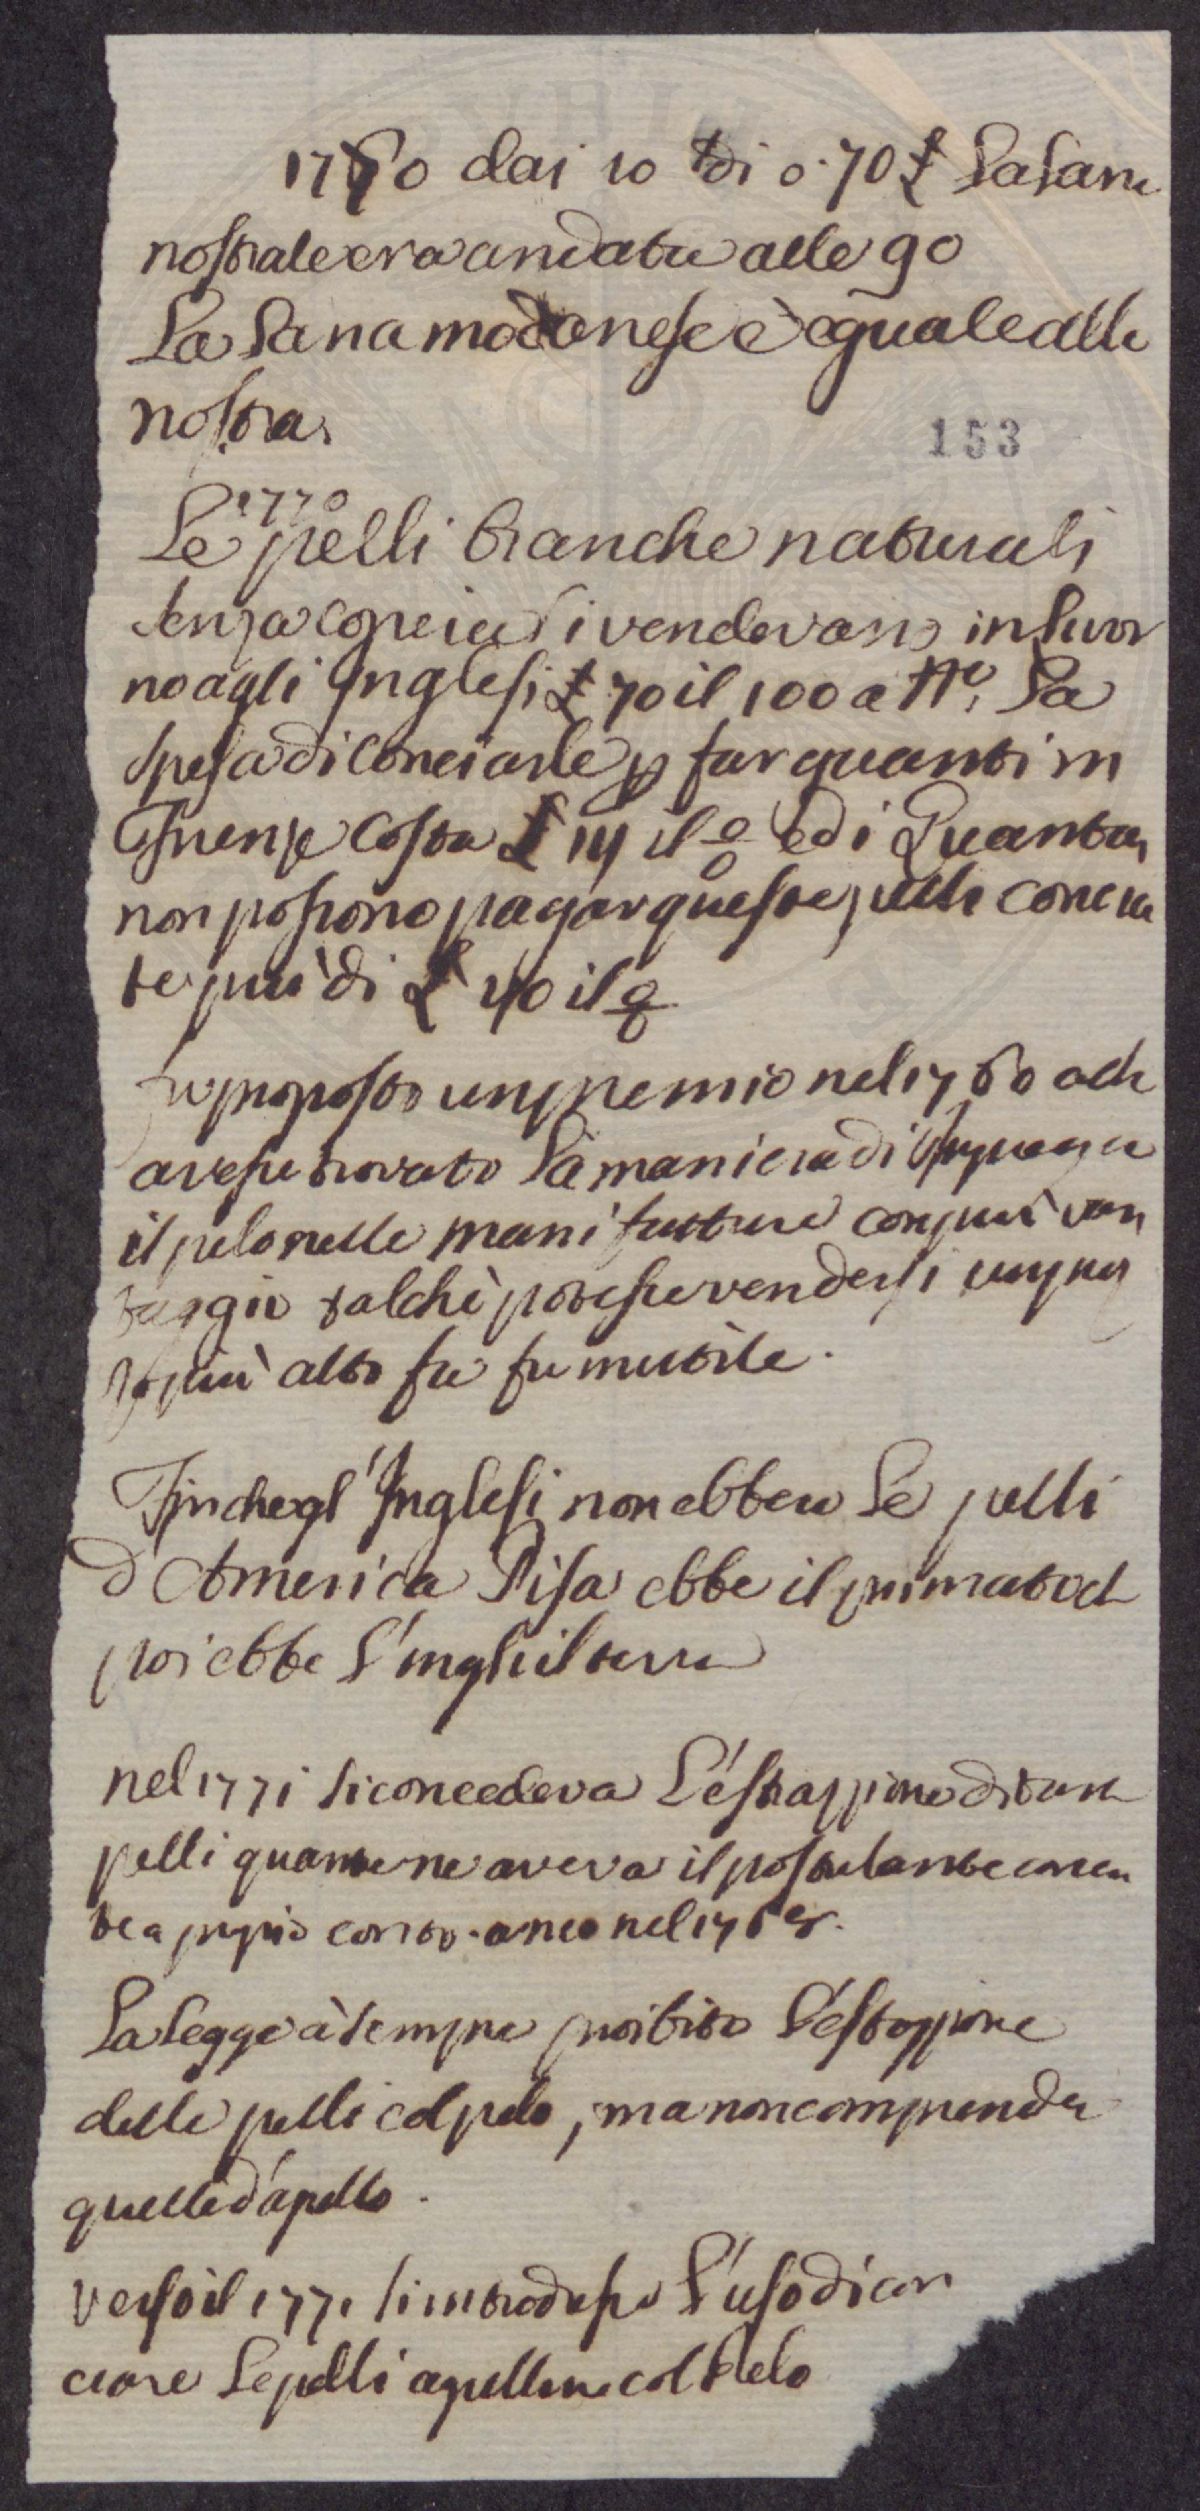 1760 dai 10 di o 70 £ La lana
nostrale era andata alle 90
La lana modonese è eguale alla
nostra.
153
1770
Le pelli bianche naturali
senza concia si vendevano in Livor
no agli Inglesi £ 70 il 100 a
La
spesa di conciarle p far guanti in
Firenze costa £ 14 il % ed i Guantai
non possono pagar queste pelli concia
te più di £ 40 il %
fu proposto un premio nel 1760 a ch
avesse trovato la maniera di impiegar
il pelo nelle manifatture con più van
taggio talchè potesse vendersi un prez
zo più alto fu fu inutile.
Finche gl'Inglesi non ebbero le pelli
d'America Pisa ebbe il primato ch
poi ebbe l'inghilterra
nel 1771 si concedeva l'estrazzione di tante
pelli quante ne aveva il postulante concia
te a proprio conto. anco nel 1769.
La Legge à sempre proibito l'estrazzione
delle pelli col pelo, ma non comprende
quelle d'agnello.
verso il 1771 s'introdusse l'uso di con
ciare le pelli agnelline col Pelo